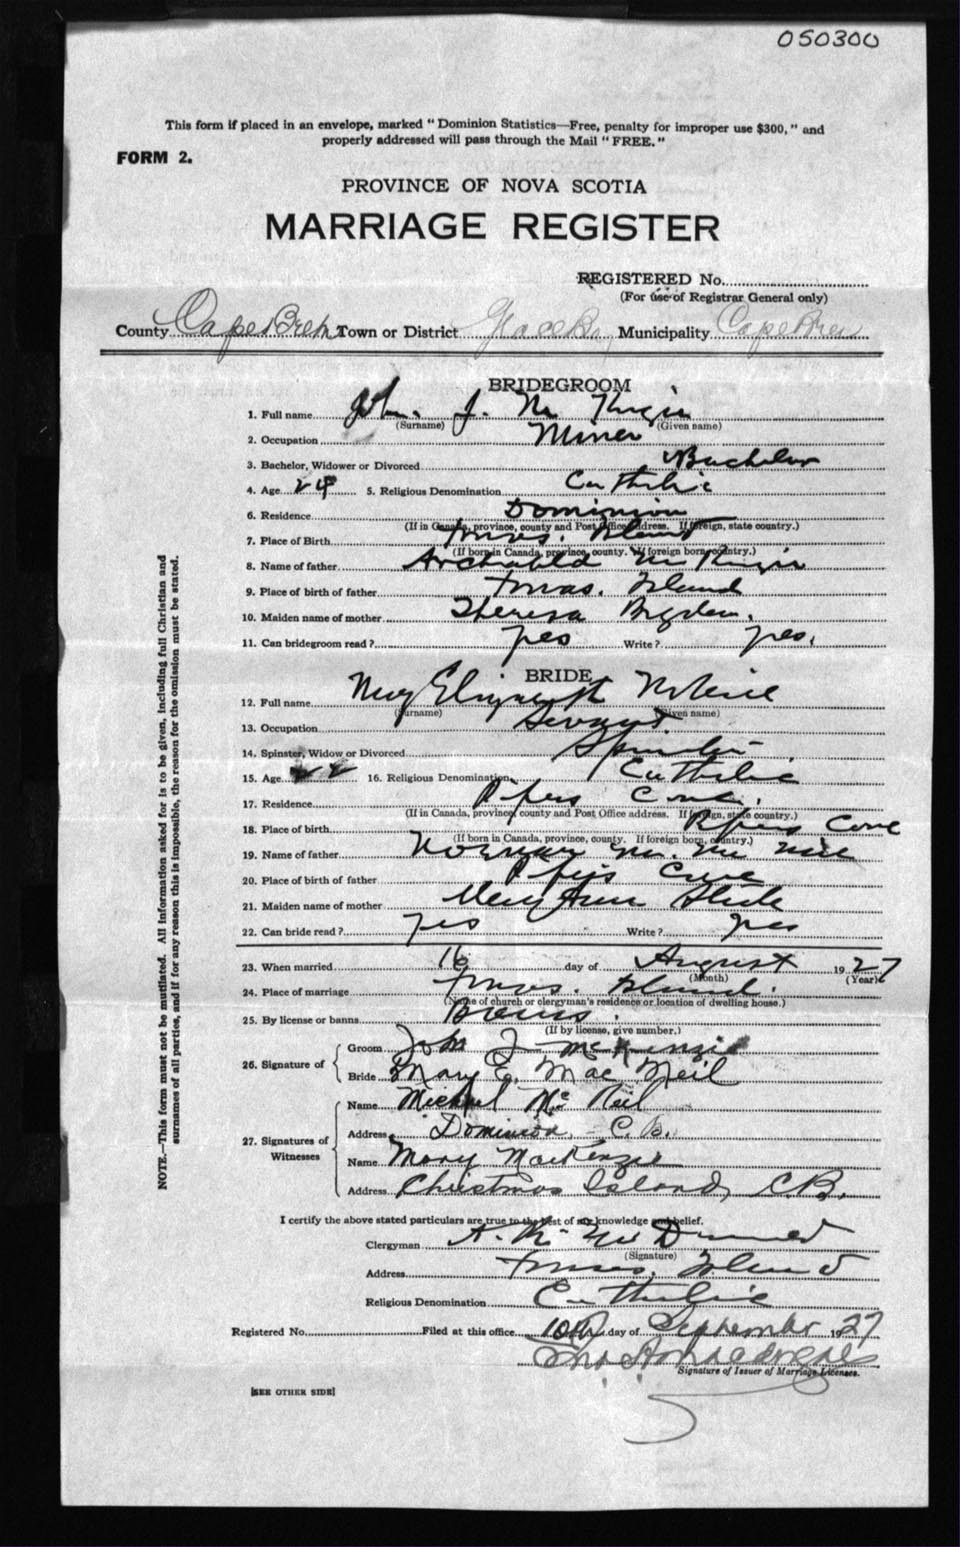 050300
This form if placed in an envelope, marked "Dominion Statistics—Free, penalty for improper use $300," and
properly addressed will pass through the Mail "FREE."
FORM 2.
PROVINCE OF NOVA SCOTIA
MARRIAGE REGISTER
REGISTERED No.
(For use of Registrar General only)
County Cape Breton Town or District Glace Bay Municipality Cape Breton
BRIDEGROOM
1. Full name John J. McKinzie
(Surname) (Given name)
2. Occupation Miner
3. Bachelor, Widower or Divorced Bachelor
4. Age 24 5. Religious Denomination Catholic
6. Residence Dominion
(If in Canada, province, county and Post Office address. If foreign, state country.)
7. Place of Birth Xmas. Island
(If born in Canada, province, county. If foreign born, country.)
8. Name of father Archibald McKinzie
9. Place of birth of father Xmas. Island
10. Maiden name of mother Theresa
11. Can bridegroom read? yes Write? yes.
BRIDE
12. Full name Mary Elizabeth McNeil
(Surname) (Given name)
13. Occupation Servant
14. Spinster, Widow or Divorced Spinster
15. Age 22 16. Religious Denomination Catholic
17. Residence Pipers Cove.
(If in Canada, province, county and Post Office address. If foreign, state country.)
18. Place of birth Pipers Cove
(If born in Canada, province, county. If foreign born, country.)
19. Name of father Norman M. McNeil
20. Place of birth of father Pipers Cove
21. Maiden name of mother Mary Ann
22. Can bride read? yes Write? yes
23. When married 16 day of August 1927
(Month) (Year)
24. Place of marriage Xmas. Island.
(Name of church or clergyman's residence or location of dwelling house.)
25. By license or banns Banns.
(If by license, give number.)
26. Signature of
Groom John J McKenzie
Bride Mary E. MacNeil
27. Signatures of Witnesses
Name Michael McNeil
Address Dominion, C.B.
Name Mary MacKenzie
Address Christmas Island, C.B.
I certify the above stated particulars are true to the best of my knowledge and belief.
Clergyman
(Signature)
Address Xmas. Island
Religious Denomination Catholic
Registered No. Filed at this office 10th day of September 1927
Signature of Issuer of Marriage Licenses.
[SEE OTHER SIDE]
NOTE.—This form must not be mutilated. All information asked for is to be given, including full Christian and
surnames of all parties, and if for any reason this is impossible, the reason for the omission must be stated.